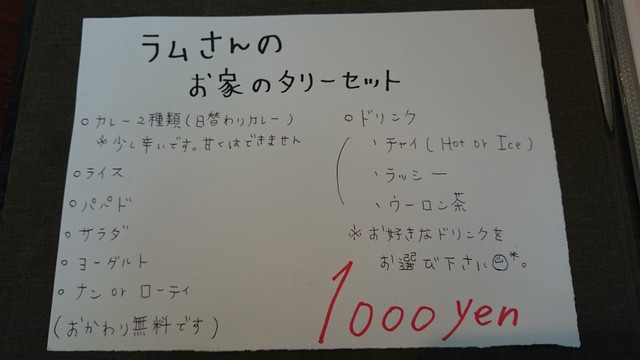 ラムさんの
お家のタリーセット
○カレー2種類(日替わりカレー)
※少し辛いです。甘くはできません
○ライス
○パパド
○サラダ
○ヨーグルト
○ナン or ローティ
(おかわり無料です)
○ドリンク
、チャイ(Hot or Ice)
、ラッシー
、ウーロン茶
※お好きなドリンクを
お選び下さい☺*。
1000 yen